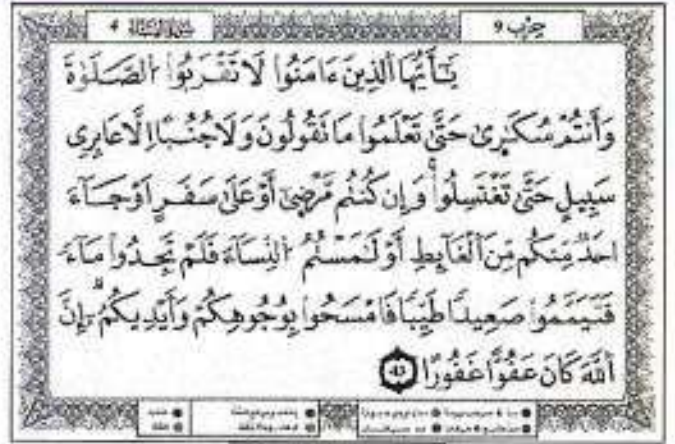 سورة النساء 4
حزب 9
يَـٰٓأَيُّهَا اَلذِينَ ءَامَنُواْ لَا تَقْرَبُواْ اُلصَّلَوٰةَ
وَأَنتُمْ سُكَـٰرِىٰ حَتَّىٰ تَعْلَمُواْ مَا تَقُولُونَ وَلَا جُنُبًا اِلَّا عَابِرِى
سَبِيلٍ حَتَّىٰ تَغْتَسِلُواْ وَإِن كُنتُم مَّرْضِىٰٓ أَوْ عَلَىٰ سَفَرٍ اَوْ جَآءَ
احَدٌ مِّنكُم مِّنَ اَلْغَآئِطِ أَوْ لَـٰمَسْتُمُ اُلنِّسَآءَ فَلَمْ تَجِدُواْ مَآءً
فَتَيَمَّمُواْ صَعِيدًا طَيِّبًا فَامْسَحُواْ بِوُجُوهِكُمْ وَأَيْدِيكُمُ إِنَّ
اَللَّهَ كَانَ عَفُوًّا غَفُورًا